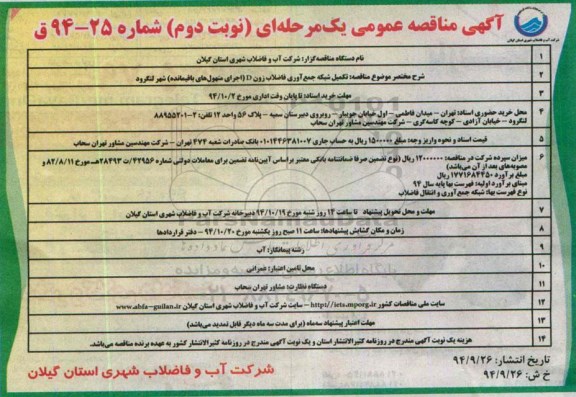 آگهی مناقصه عمومی یک‌مرحله‌ای (نوبت دوم) شماره ۲۵-۹۴ ق
شرکت آب و فاضلاب شهری استان گیلان
۱ نام دستگاه مناقصه‌گزار: شرکت آب و فاضلاب شهری استان گیلان
۲ شرح مختصر موضوع مناقصه: تکمیل شبکه جمع‌آوری فاضلاب زون D (اجرای منهول‌های باقیمانده) شهر لنگرود
۳ مهلت خرید اسناد: تا پایان وقت اداری مورخ ۹۴/۱۰/۲
۴ محل خرید حضوری اسناد: تهران – میدان فاطمی – اول خیابان جویبار – روبروی دبیرستان سمیه – پلاک ۵۶ واحد ۱۲ تلفن: ۲-۸۸۹۵۵۲۰۱
لنگرود – خیابان آزادی – کوچه کاسه‌گری – شرکت مهندسین مشاور تهران سحاب
۵ قیمت اسناد و نحوه واریز وجه: مبلغ ۱۵۰۰۰۰۰ ریال به حساب جاری ۰۱۰۱۴۴۶۳۸۱۰۰۷ بانک صادرات شعبه ۴۷۴ تهران – شرکت مهندسین مشاور تهران سحاب
۶ میزان سپرده شرکت در مناقصه: ۱۲۰۰۰۰۰۰۰ ریال (نوع تضمین صرفا ضمانتنامه بانکی معتبر براساس آیین‌نامه تضمین برای معاملات دولتی شماره ۴۲۹۵۶/ت ۲۸۴۹۳هـ مورخ ۸۲/۸/۱۱ و
مصوبه‌های بعد از آن می‌باشد)
مبلغ برآورد اولیه: ۱۷۷۱۶۸۴۳۵۰ ریال
مبنای برآورد اولیه: فهرست بها پایه سال ۹۴
نوع فهرست بها: شبکه جمع‌آوری و انتقال فاضلاب
۷ مهلت و محل تحویل پیشنهاد: تا ساعت ۱۴ روز شنبه مورخ ۹۴/۱۰/۱۹ دبیرخانه شرکت آب و فاضلاب شهری استان گیلان
۸ زمان و مکان گشایش پیشنهادها: ساعت ۱۱ صبح روز یکشنبه مورخ ۹۴/۱۰/۲۰ – دفتر قراردادها
۹ رشته پیمانکار: آب
۱۰ محل تامین اعتبار: عمرانی
۱۱ دستگاه نظارت: مشاور تهران سحاب
۱۲ سایت ملی مناقصات کشور http://iets.mporg.ir – سایت شرکت آب و فاضلاب شهری استان گیلان www.abfa-guilan.ir
۱۳ مهلت اعتبار پیشنهاد سه‌ماه (برای مدت سه ماه دیگر قابل تمدید می‌باشد)
۱۴ هزینه یک نوبت آگهی مندرج در روزنامه کثیرالانتشار استان و یک نوبت آگهی مندرج در روزنامه کثیرالانتشار کشور به عهده برنده مناقصه می‌باشد.
تاریخ انتشار: ۹۴/۹/۲۶
خ ش: ۹۴/۹/۲۶
شرکت آب و فاضلاب شهری استان گیلان